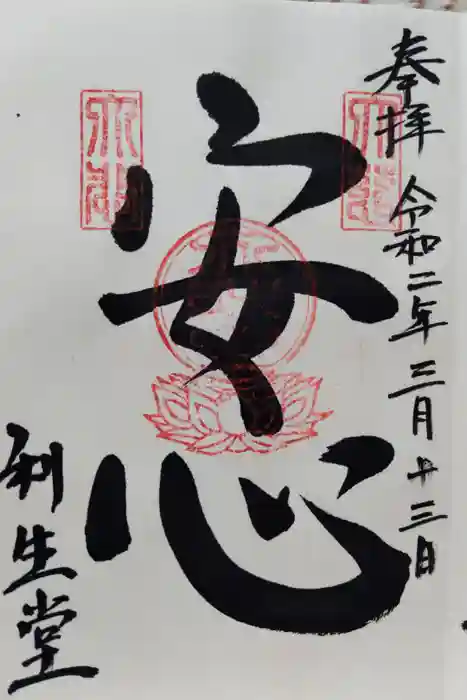 奉拝 令和二年三月十三日
安心
利生堂